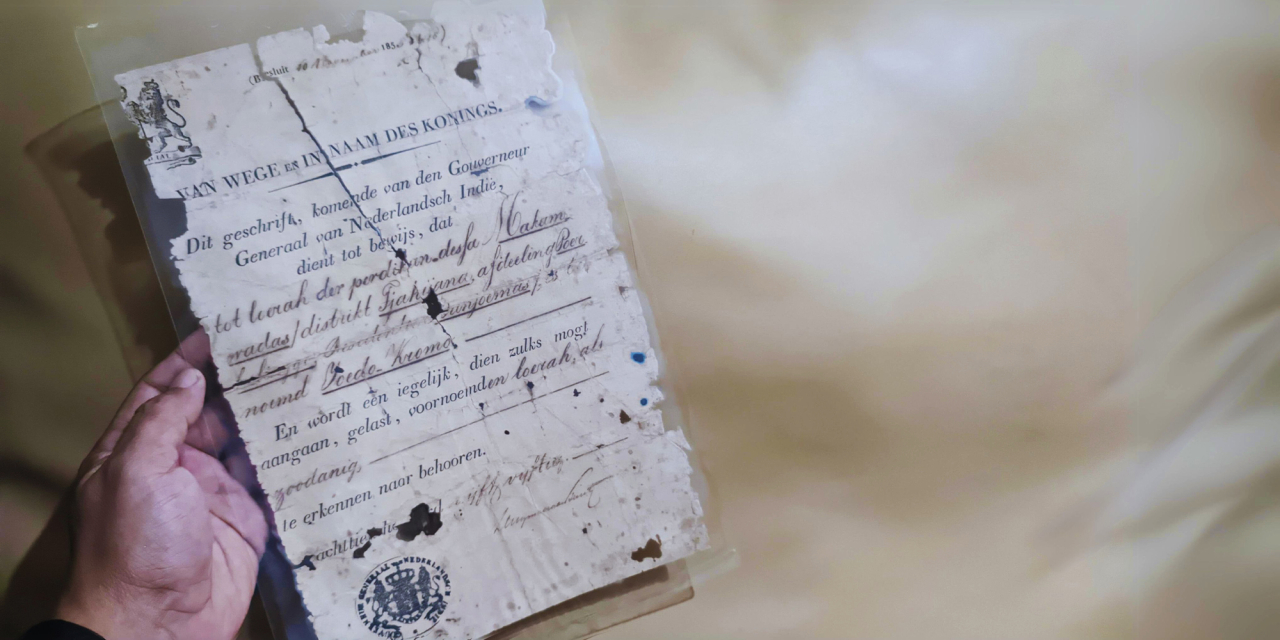 (Besluit 185
VAN WEGE EN IN NAAM DES KONINGS.
Dit geschrift, komende van den Gouverneur
Generaal van Nederlandsch Indië,
dient tot bewijs, dat
tot loerah der perdikan dessa Makam
distrikt Tjahijana, afdeeling Poer
Banjoemas is be
noemd Joedo Kromo
En wordt een iegelijk, dien zulks mogt
aangaan, gelast, voornoemden loerah, als
zoodanig,
te erkennen naar behooren.
vijf en vijftig.